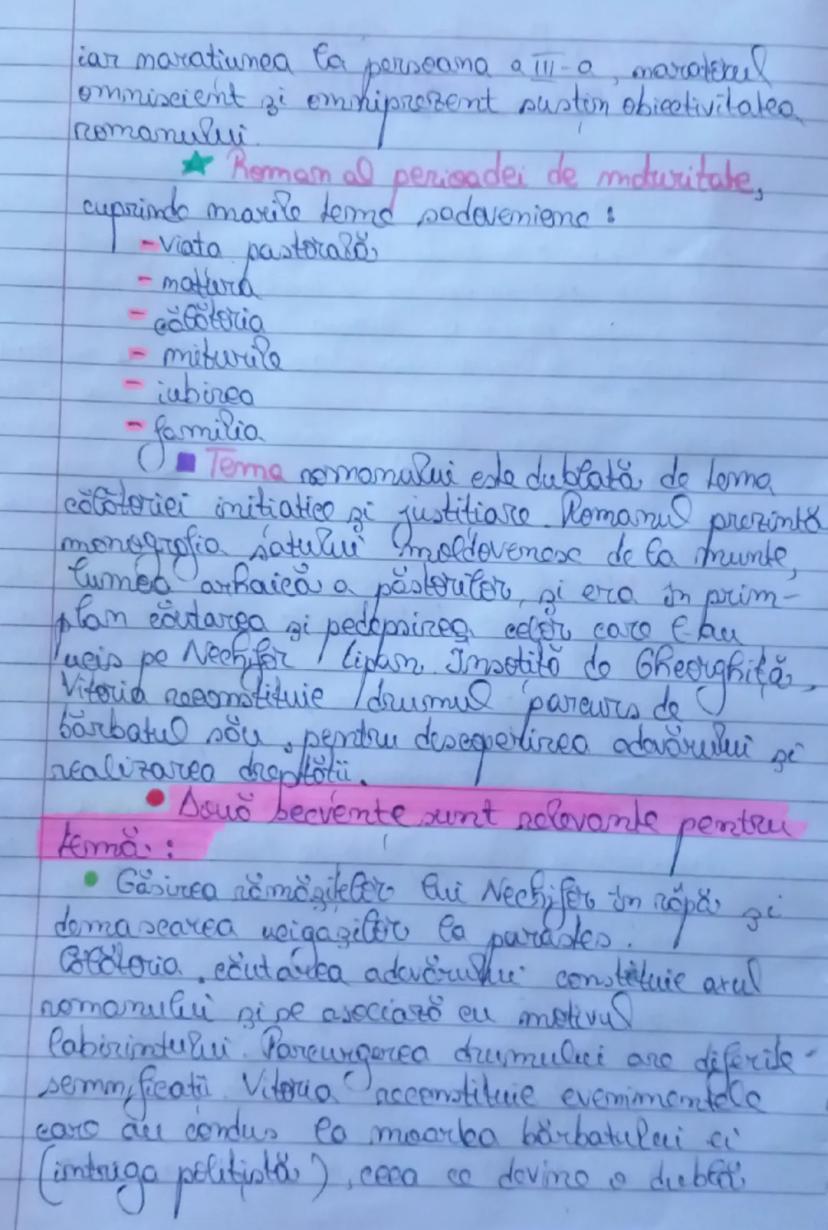 iar naratiunea la perseana a III-a, naratorul
omniscient și omniprezent sustin obiectivitatea
romanului.
Roman al perioadei de maturitate,
cuprinde marile teme sadoveniene :
- viata pastorală
- natura
- călătoria
- miturile
- iubirea
- familia
Tema romanului este dublată de tema
călătoriei initiatice și justitiare. Romanul prezintă
monografia satului moldovenesc de la munte,
lumea arhaică a păstorilor, și are în prim-
plan căutarea și pedepsirea celor care l-au
ucis pe Nechifor Lipan. Însotită de Gheorghiță,
Vitoria reconstituie drumul parcurs de
bărbatul său, pentru descoperirea adevărului și
realizarea dreptătii.
Două secvente sunt relevante pentru
temă. :
Găsirea rămășitelor lui Nechifor în râpă și
demascarea ucigașilor la parastas.
Călătoria, căutarea adevărului constituie axul
romanului și se asociază cu motivul
labirintului. Parcurgerea drumului are diferite
semnificatii. Vitoria reconstituie evenimentele
care au condus la moartea bărbatului ei
(intriga politistă), ceea ce devine o dublă